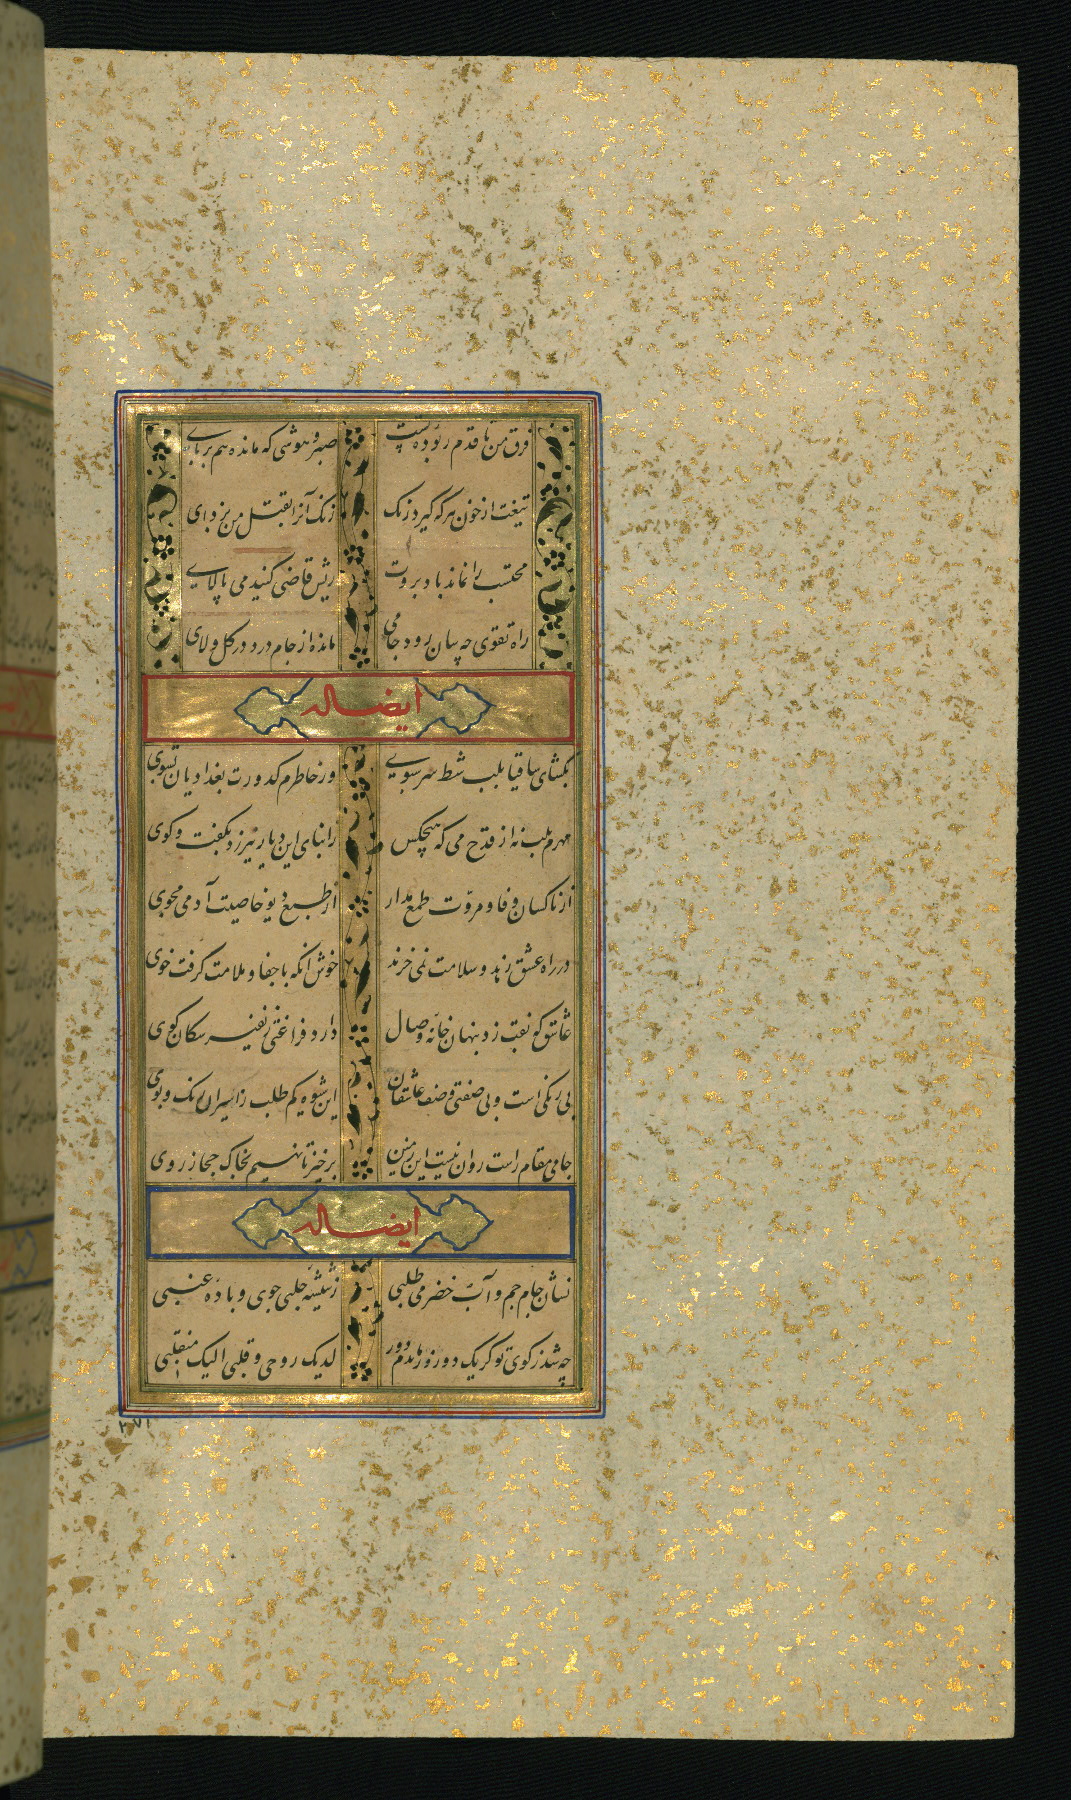 فرق من تا قدم ربوده تست صبر و هوشی که مانده هم بربای
تیغت از خون هر که گیرد زنک زنک آنرا بقتل من بزدای
محتسب را نماند باد بروت ریش قاضی کنید می پالای
راه تقوی چه سان رود جامی مانده از جام درد در کل و لای
ایضا له
بکشای ساقیا بلب شط سر سبوی وز خاطرم کدورت بغدادیان بشوی
مهرم بلب نه از قدح می که هیچکس ز ابنای این دیار نیرزد بکفت و کوی
از ناکسان وفا و مروت طمع مدار از طبع دیو خاصیت آدمی مجوی
در راه عشق زهد و سلامت نمی خرند خوش آنکه با جفا و ملامت کرفت خوی
عاشق که نقب زد بنهان خانه وصال دارد فراغتی ز نفیر سکان کوی
بی رنکی است و بی صفتی وصف عاشقان این شیوه کم طلب ز اسیران رنک و بوی
جامی مقام راست روان نیست این زمین برخیز تا نهیم بخاک حجاز روی
ایضا له
نشان جام جم و آب خضر می طلبی ز شیشه حلبی جوی و باده عنبی
چه شد ز کوی تو کر یک دو روز ماندم دور لدیک روحی و قلبی الیک منقلبی
۲۷۱